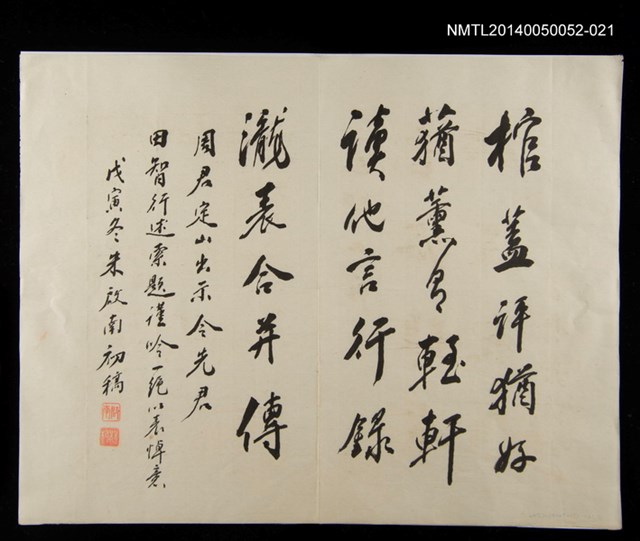 NMTL20140050052-021
棺蓋評猶好
蕕薰多軽軒
讀他言行錄
瀧表合并傳
周君定山出示令先君
田智行述索題謹吟一絕以表悼意
戊寅冬朱啟南初稿